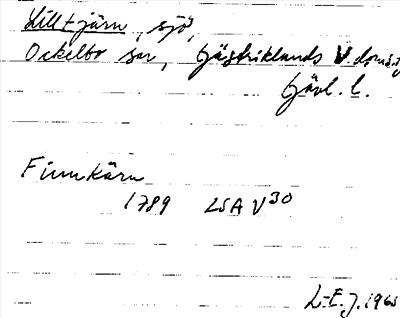 Lilltjärn, sjö,
Ockelbo sn, Gästriklands V domsg
Gävl. l.
Finnkärn
1789 LSA V 30
L-E. J. 1965